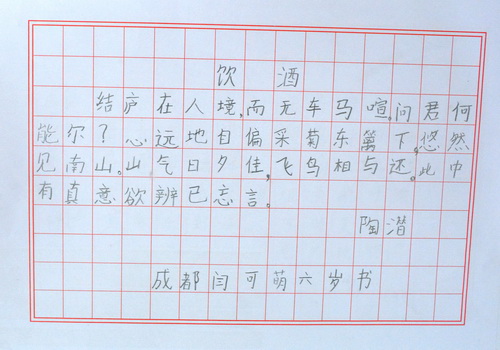 饮酒
结庐在人境,而无车马喧。问君何
能尔?心远地自偏采菊东篱下,悠然
见南山。山气日夕佳,飞鸟相与还。此中
有真意欲辨已忘言。
陶潜
成都闫可萌六岁书